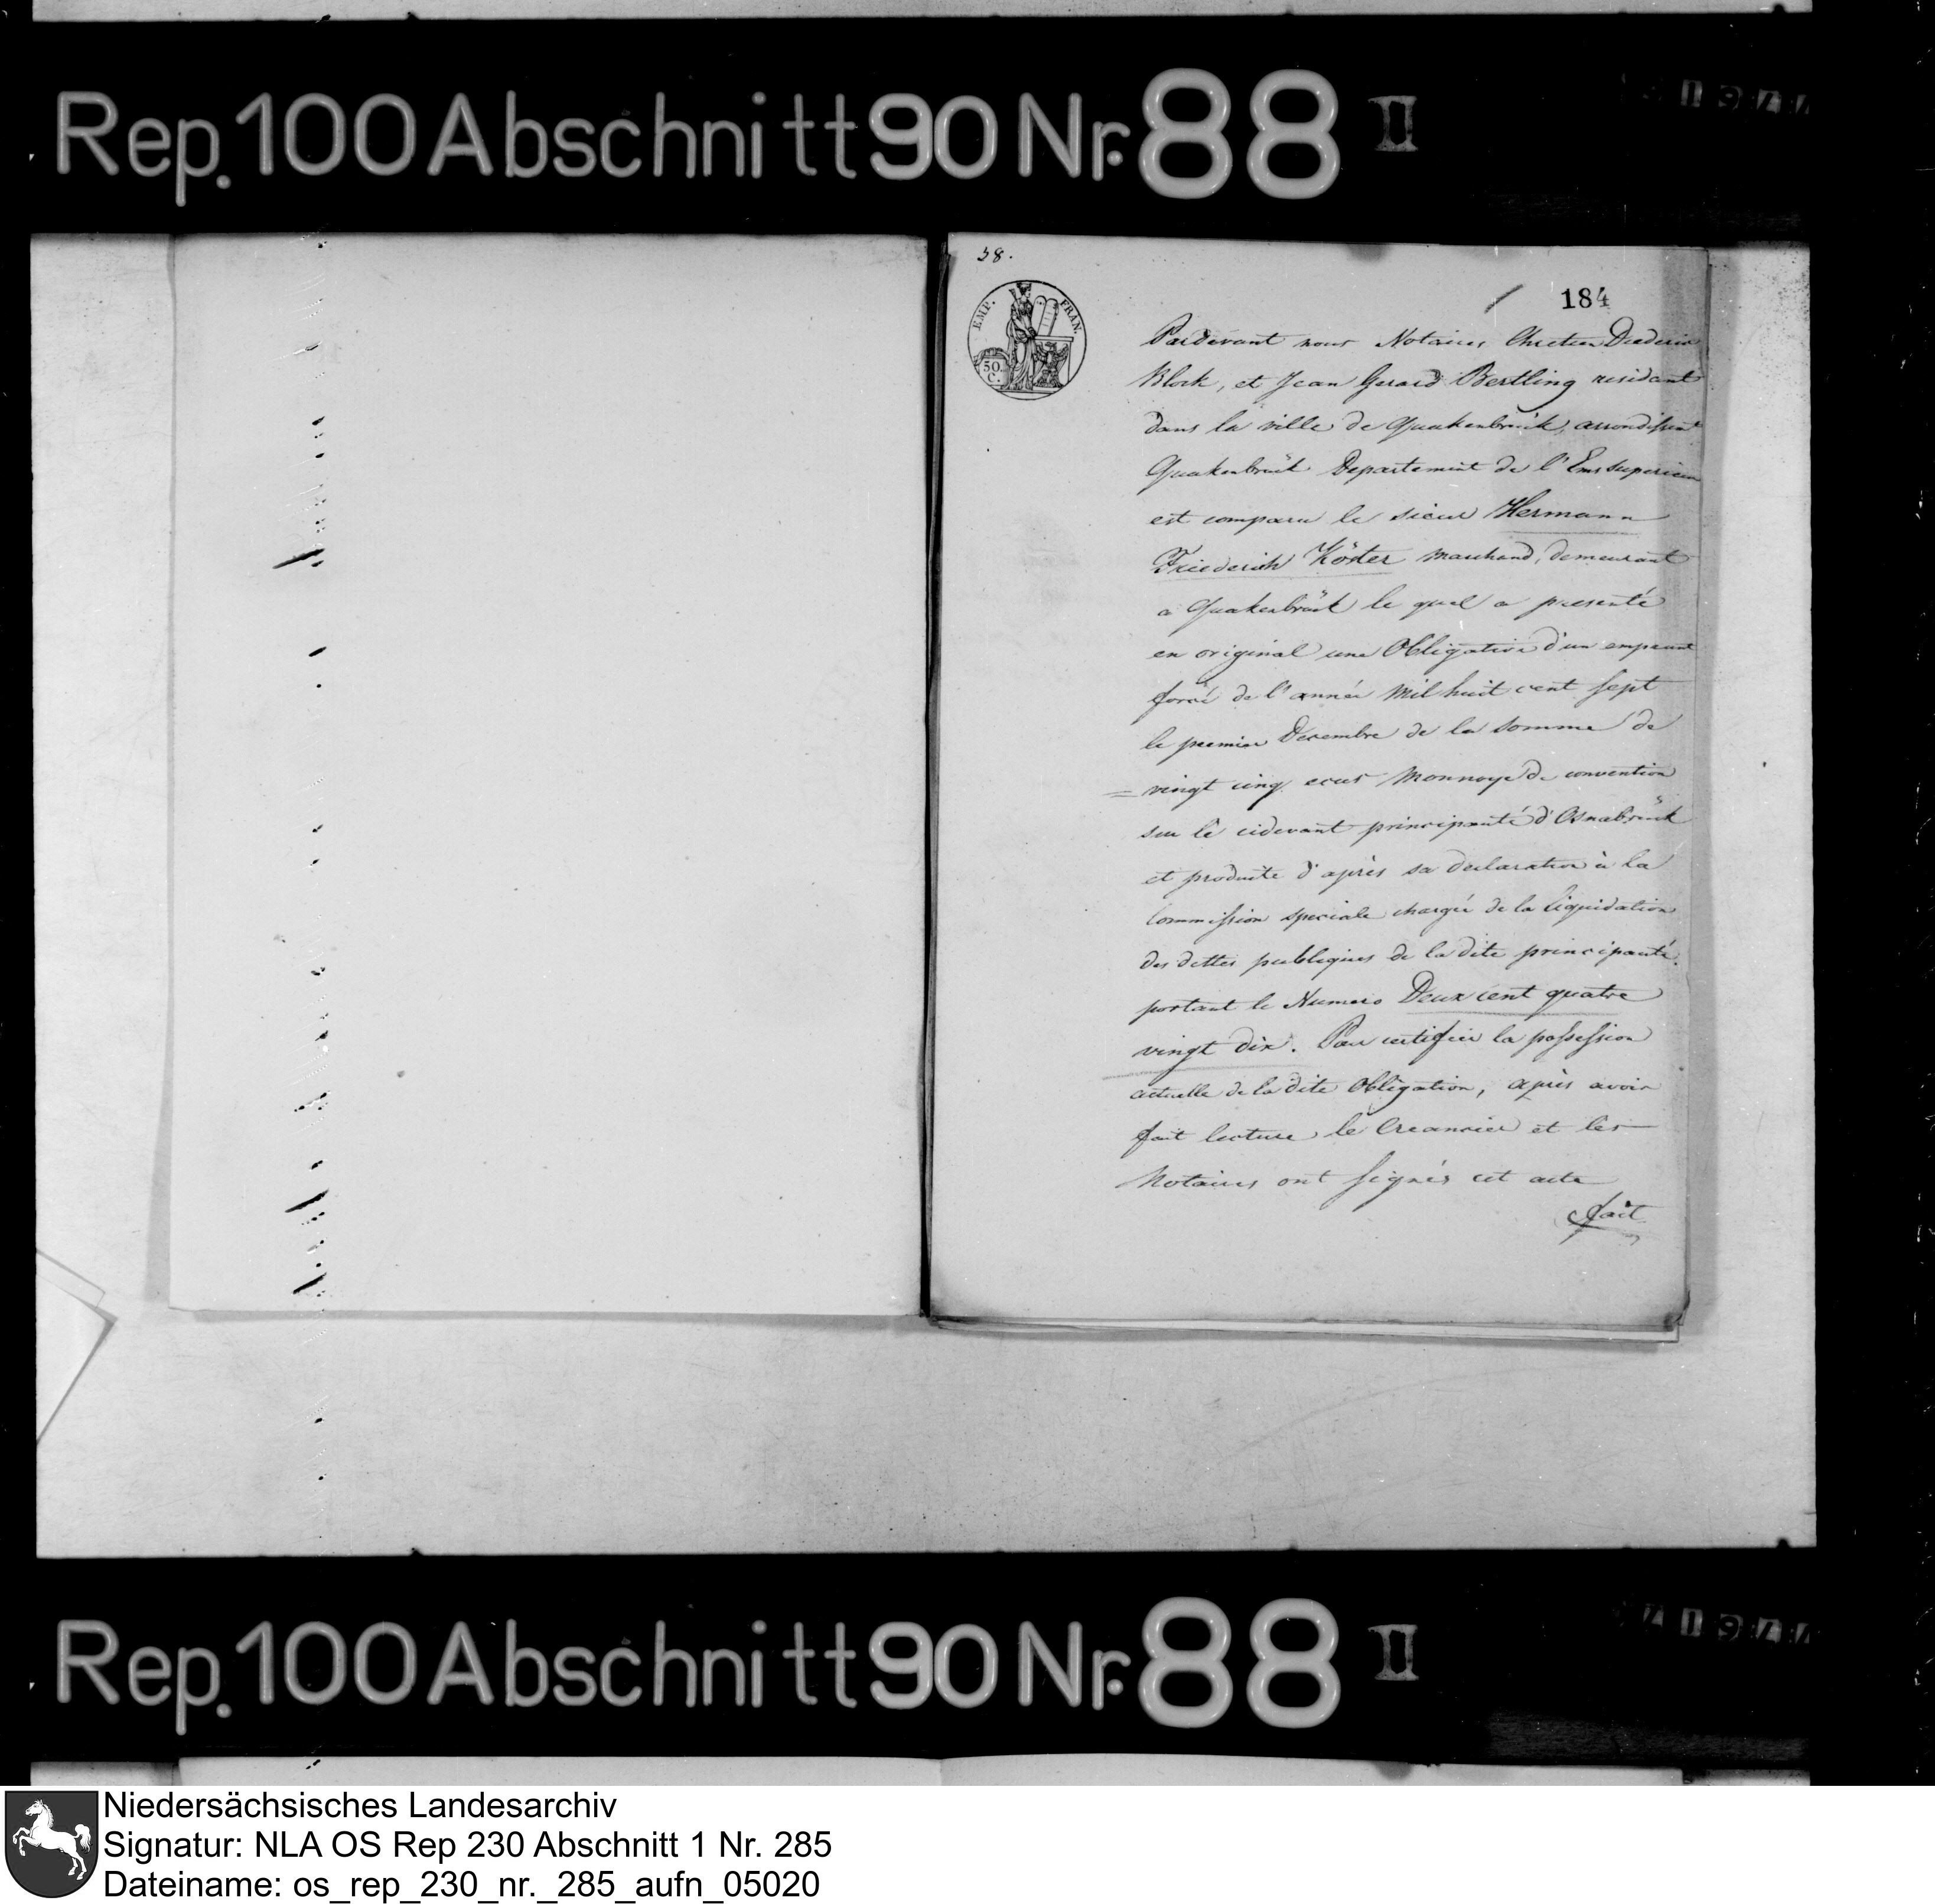 Rep. 100 Abschnitt 90 Nr. 88 II
58.
184
EMP. FRAN.
50. C.
Pardevant nous Notaires Chretien Diederic
Block, et Jean Gerard Bertling residant
dans la ville de Quakenbrück, arrondissent
Quakenbrück Departement de l'Ems Superieur
est comparu le sieur Hermann
Friederich Köster marchand, demeurant
a Quakenbrück le quel a presenté
en original une Obligation d'un emprunt
forcé de l'année Mil huit cent sept
le premier Decembre de la somme de
vingt cinq ecus Monnoye de convention
sur le cidevant principauté d'Osnabrück
et produite d'après sa declaration à la
Commission speciale chargée de la liquidation
des dettes publiques de la dite principauté.
portant le Numero Deux cent quatre
vingt dix. Pour certifier la possession
actuelle de la dite Obligation, après avoir
fait lecture le Creancier et les
Notaires ont signés cet acte
fait
Rep. 100 Abschnitt 90 Nr. 88 II
Niedersächsisches Landesarchiv
Signatur: NLA OS Rep 230 Abschnitt 1 Nr. 285
Dateiname: os_rep_230_nr._285_aufn_05020